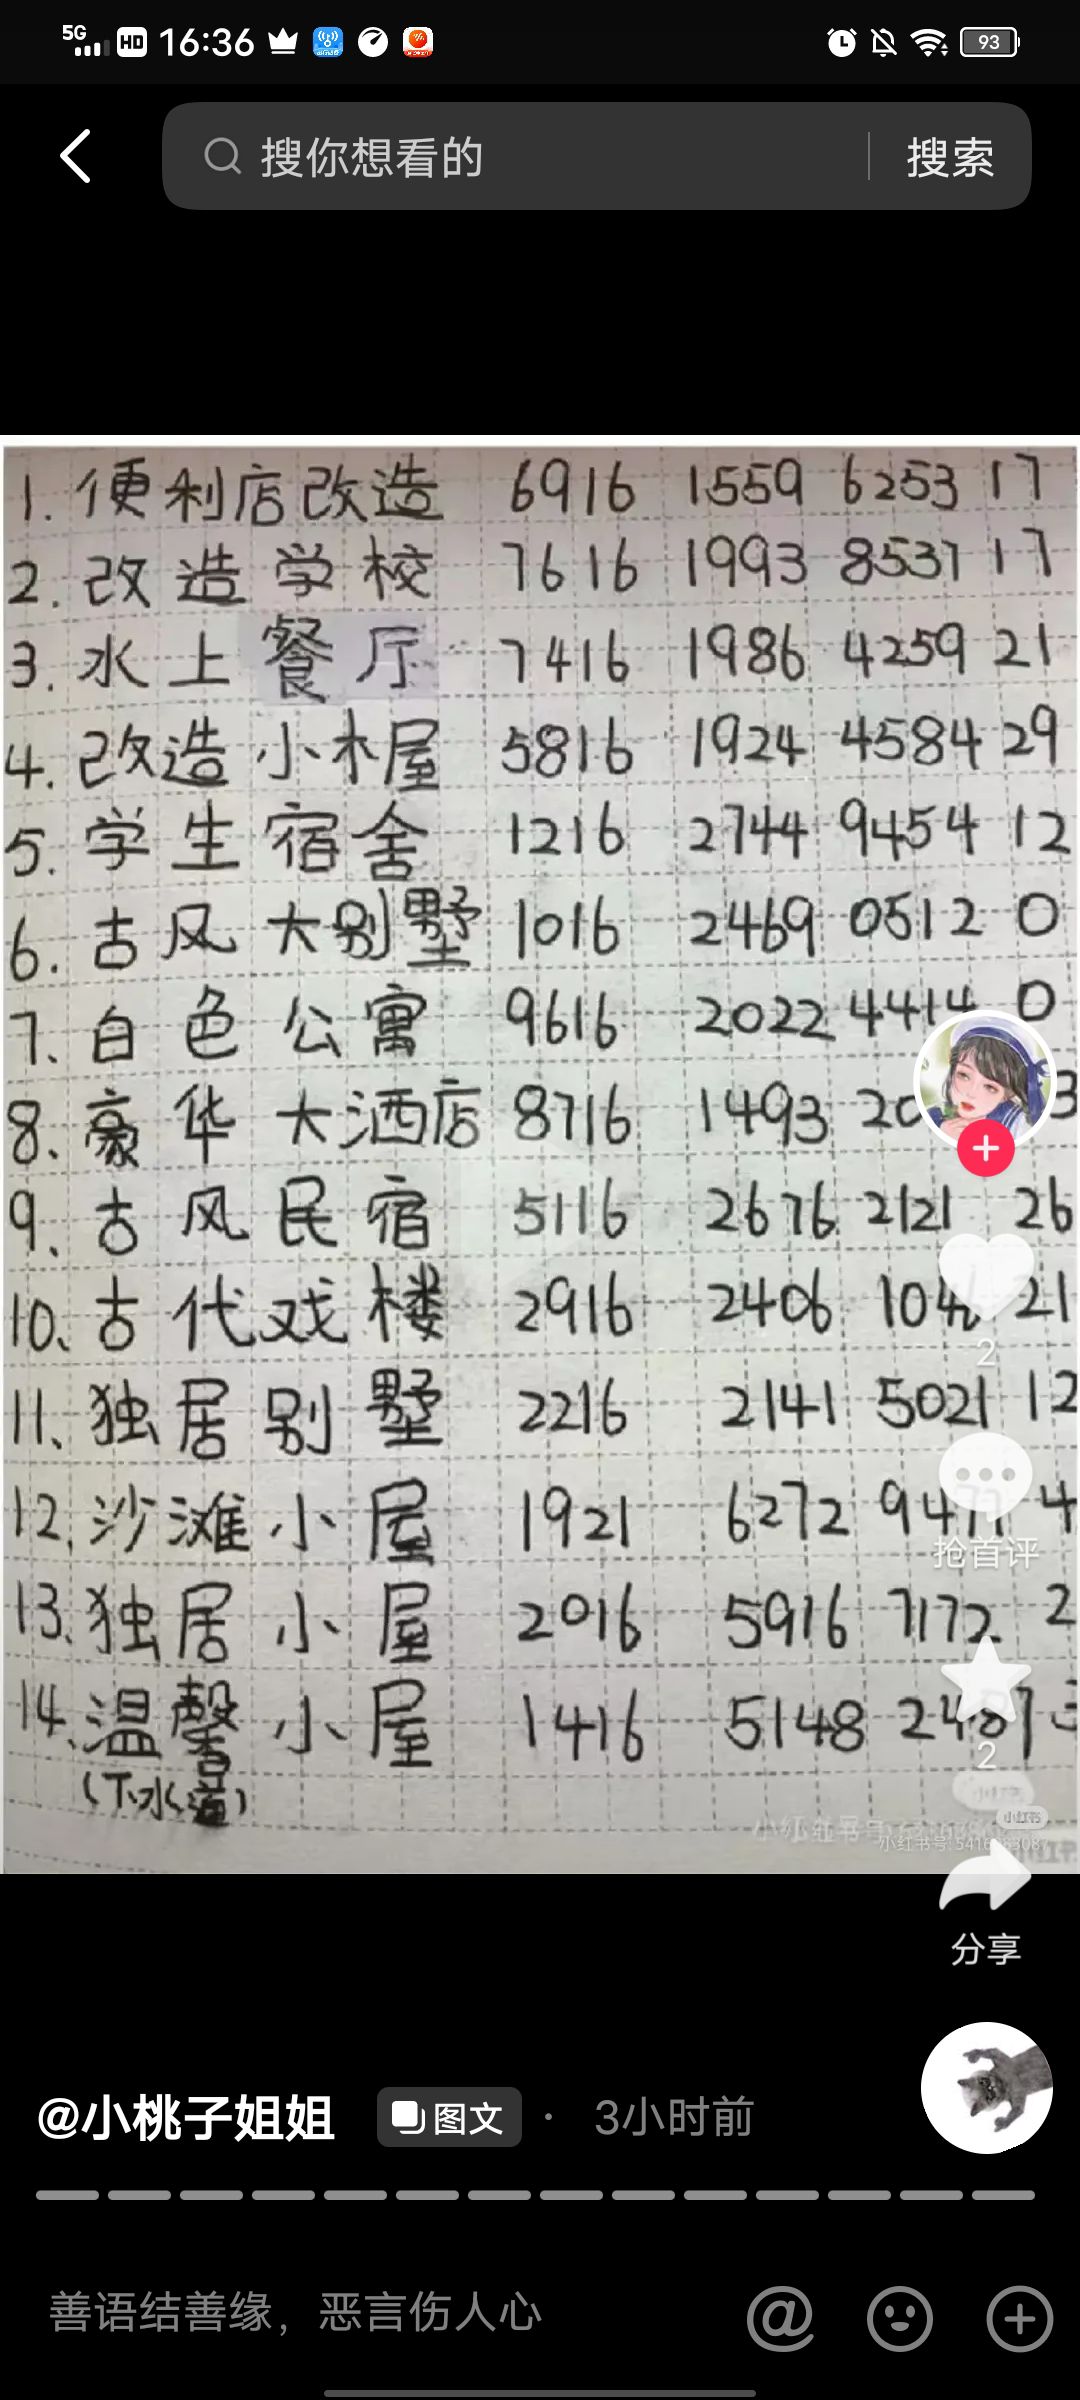 5G HD 16:36 93
搜你想看的 搜索
1. 便利店改造 6916 1559 6253 17
2. 改造学校 7616 1993 8537 17
3. 水上餐厅 7416 1986 4259 21
4. 改造小木屋 5816 1924 4584 29
5. 学生宿舍 1216 2744 9454 12
6. 古风大别墅 1016 2469 0512 0
7. 白色公寓 9616 2022 4414 0
8. 豪华大洒店 8716 1493
9. 古风民宿 5116 2676 2121 26
10. 古代戏楼 2916 2406 21
2
11. 独居别墅 2216 2141 5021 12
12. 沙滩小屋 1921 6272 4
抢首评
13. 独居小屋 2016 5916 7172 2
14. 温馨小屋 1416 5148
2
(下水道)
小红书
分享
@小桃子姐姐 图文 · 3小时前
善语结善缘，恶言伤人心